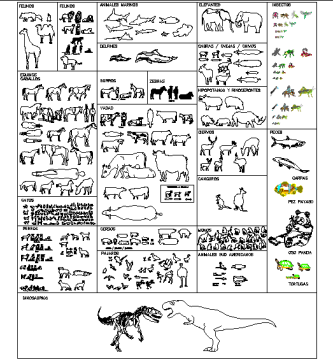 FELINOS
FELINOS
ANIMALES MARINOS
ELEFANTES
INSECTOS
DELFINES
CABRAS / OVEJAS / CHIVOS
EQUINOS
CABALLOS
BURROS
ZEBRAS
HIPOPOTAMOS Y RINOCERONTES
VACAS
CIERVOS
PECES
CARPAS
CANGUROS
PEZ PAYASO
GATOS
PERROS
CERDOS
MONOS
PAJAROS
ANIMALES SUD AMERICANOS
OSO PANDA
TORTUGAS
DINOSAURIOS